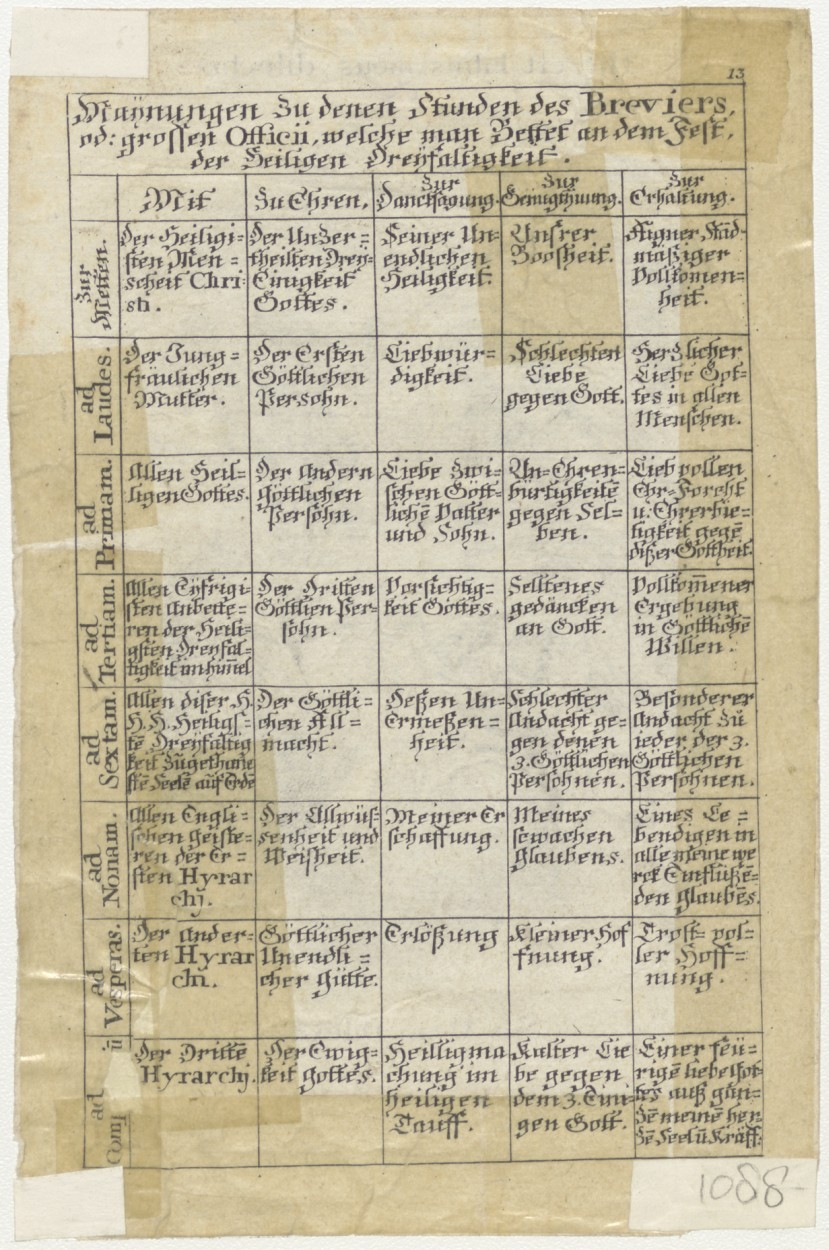 13
Maÿnungen Zu denen Stunden des Breviers,
od: grossen Officii, welche man Bettet an dem Fest,
der Heiligen Dreÿfaltigkeit.
Mit
Zu Ehren.
Zur
Dancksagung.
Zur
Genugthuung.
Zur
Erhaltung.
Zur
Metten.
der Heiligi-
sten Men-
scheit Chri-
sti.
Der Unzer-
theilten Dreÿ-
Einigkeit
Gottes.
Seiner Un-
endlichen
Heiligkeit.
Unsrer
Boosheit.
Aigner Stād-
mäßiger
Vollkomen-
heit.
ad
Laudes.
Der Jung-
fräulichen
Mutter.
Der Ersten
Göttlichen
Persohn.
Liebwür-
digkeit.
Schlechten
Liebe
gegen Gott.
Herzlicher
Liebe Got-
tes in allen
Menschen.
ad
Primam.
Allen Heil-
ligen Gottes.
Der andern
göttlichen
Persohn.
Liebe Zwi-
schen Gött-
lichē Vatter
und Sohn.
Un-Ehren-
bürtigkeitē
gegen Sel-
ben.
Lieb vollen
Ehr-Forcht
u: Ehrerbie-
tigkeit gegē
dißer Gottheit.
ad
Tertiam.
Allen Eÿfrigi-
sten anbette-
ren der Heili-
gsten Dreÿfal-
tigkeit im him̄el
Der dritten
Göttlien Per-
sohn.
Vorsichtig-
keit Gottes.
Selltenes
gedäncken
an Gott.
Vollkom̄ener
Ergebung
in Göttlichē
Willen.
ad
Sextam.
Allen diser H.
H. H. Heiligs-
tē Dreÿfaltig
keit Zugethane
stē Seele auf Erde
Der Göttli-
chen All-
macht.
Deßen Un-
Ermeßen-
heit.
Schlechter
Andacht ge-
gen denen
3. Göttlichen
Persohnen.
Besonderer
Andacht zu
ieder der 3.
Göttlichen
Persohnen.
ad
Nonam.
Allen Engli-
schen geiste-
ren der Er-
sten Hyrar
chj.
Der Allwüs-
senheit und
Weisheit.
Meiner Er
schaffung.
Meines
schwachen
glaubens.
Eines Le-
bendigen in
alle meine we
rck Einflüßē-
den glaubēs.
ad
Vesperas.
Der ander-
ten Hyrar
chi.
Göttlicher
Unendli-
cher gütte.
Erlößung
Kleiner Hof
fnung.
Trost-vol-
ler Hoff-
nung.
ad
Compl
Der Drittē
Hyrarchj.
Der Ewig-
keit gottes.
Heilligma
chung im
heiligen
Tauff.
Kalter Lie
be gegen
dem 3. Eini-
gen Gott.
Einer feü-
rigē liebe Got-
tes auß gan-
dē meinē her-
zē Seel ū Kräff:
1088-